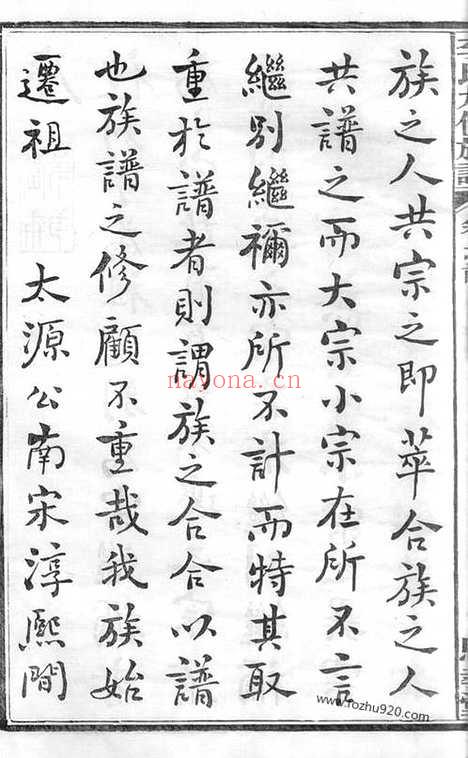 族之人共宗之即萃合族之人
共譜之而大宗小宗在所不言
繼別繼禰亦所不計而特其取
重於譜者則謂族之合合以譜
也族譜之修顧不重哉我族始
遷祖 太源公南宋淳熙間
nayona.cn
www.rozhu920.com